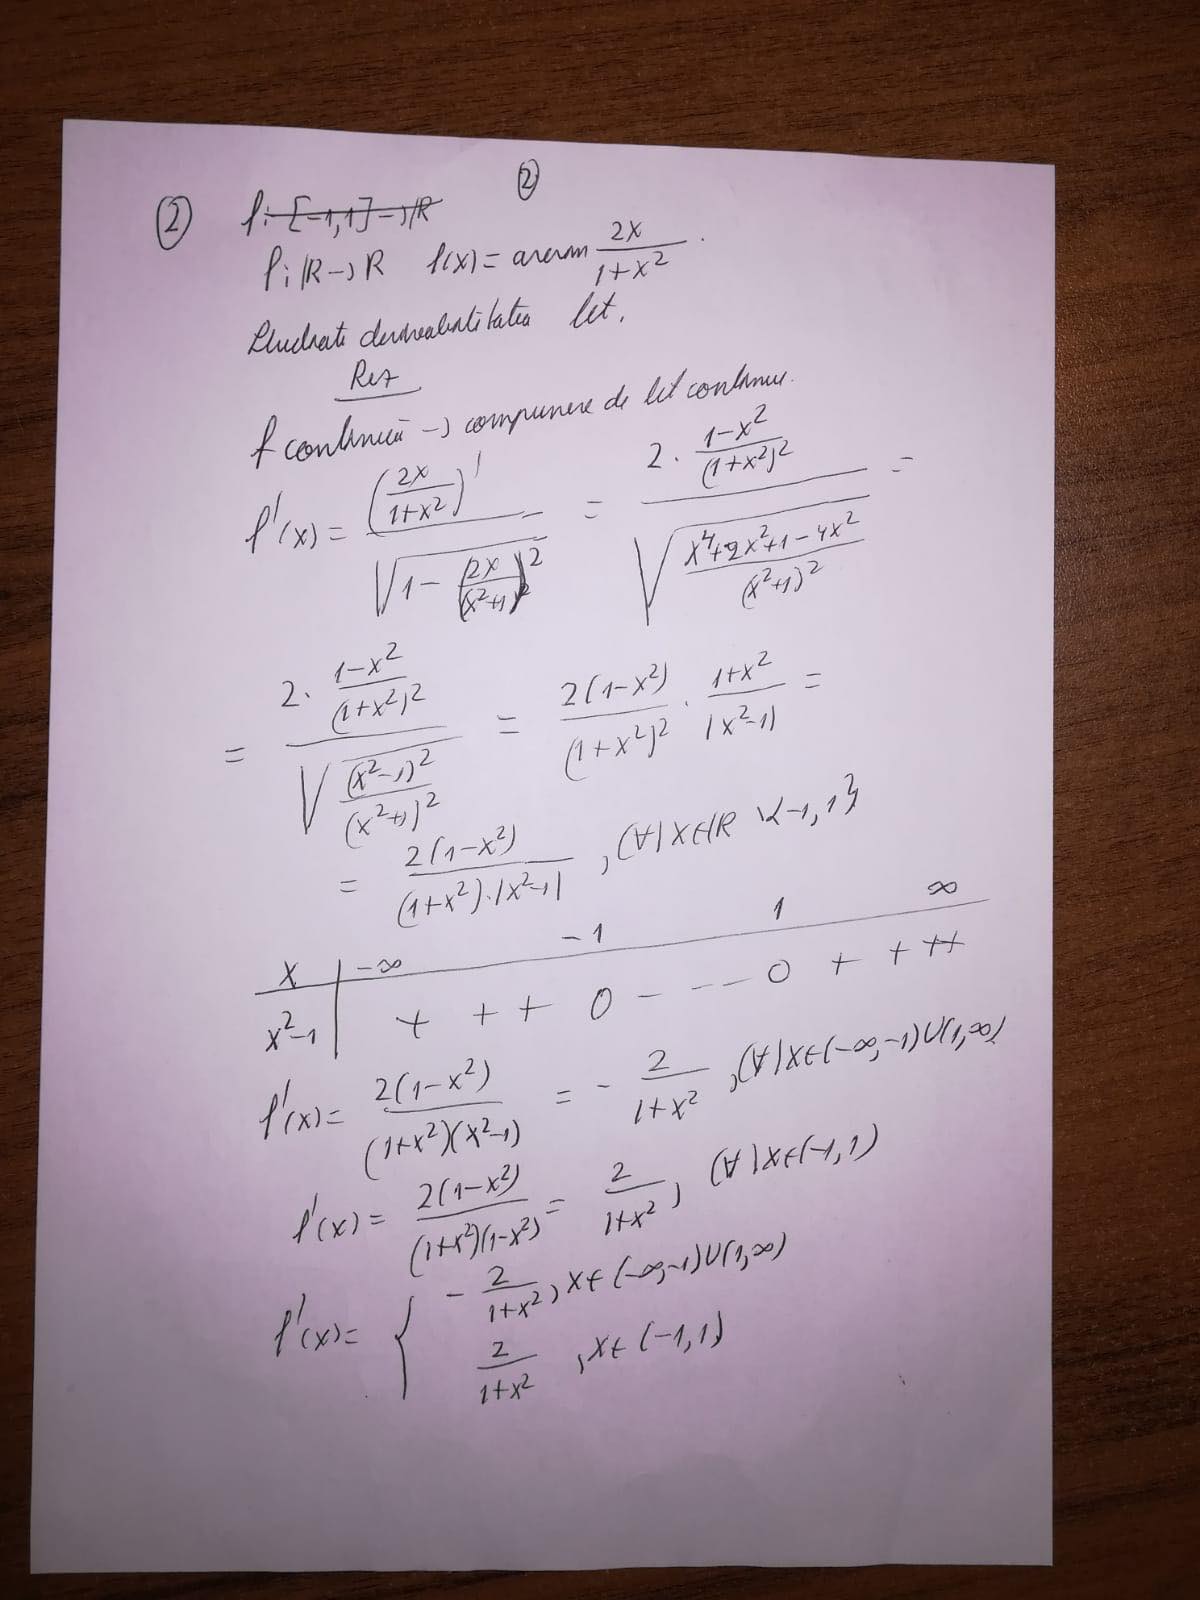 ②
② f: [-1,1] → ℝ
f: ℝ → ℝ f(x) = arcsin 2x/(1+x²).
Studiati derivabilitatea fct.
Rez
f continuă → compunere de fct continue.
f'(x) = (2x/(1+x²))' / √(1 - (2x/(x²+1))²) = 2·(1-x²)/(1+x²)² / √((x⁴+2x²+1-4x²)/(x²+1)²) =
= 2·(1-x²)/(1+x²)² / √((x²-1)²/(x²+1)²) = 2(1-x²)/(1+x²)² · (1+x²)/|x²-1| =
= 2(1-x²)/((1+x²)·|x²-1|), (∀) x∈ℝ \ {-1,1}
x | -∞ -1 1 ∞
x²-1 | + + + 0 - - - 0 + + ++
f'(x) = 2(1-x²)/((1+x²)(x²-1)) = - 2/(1+x²), (∀) x∈(-∞,-1)∪(1,∞)
f'(x) = 2(1-x²)/((1+x²)(1-x²)) = 2/(1+x²), (∀) x∈(-1,1)
f'(x) = { - 2/(1+x²), x∈(-∞,-1)∪(1,∞)
2/(1+x²), x∈(-1,1)